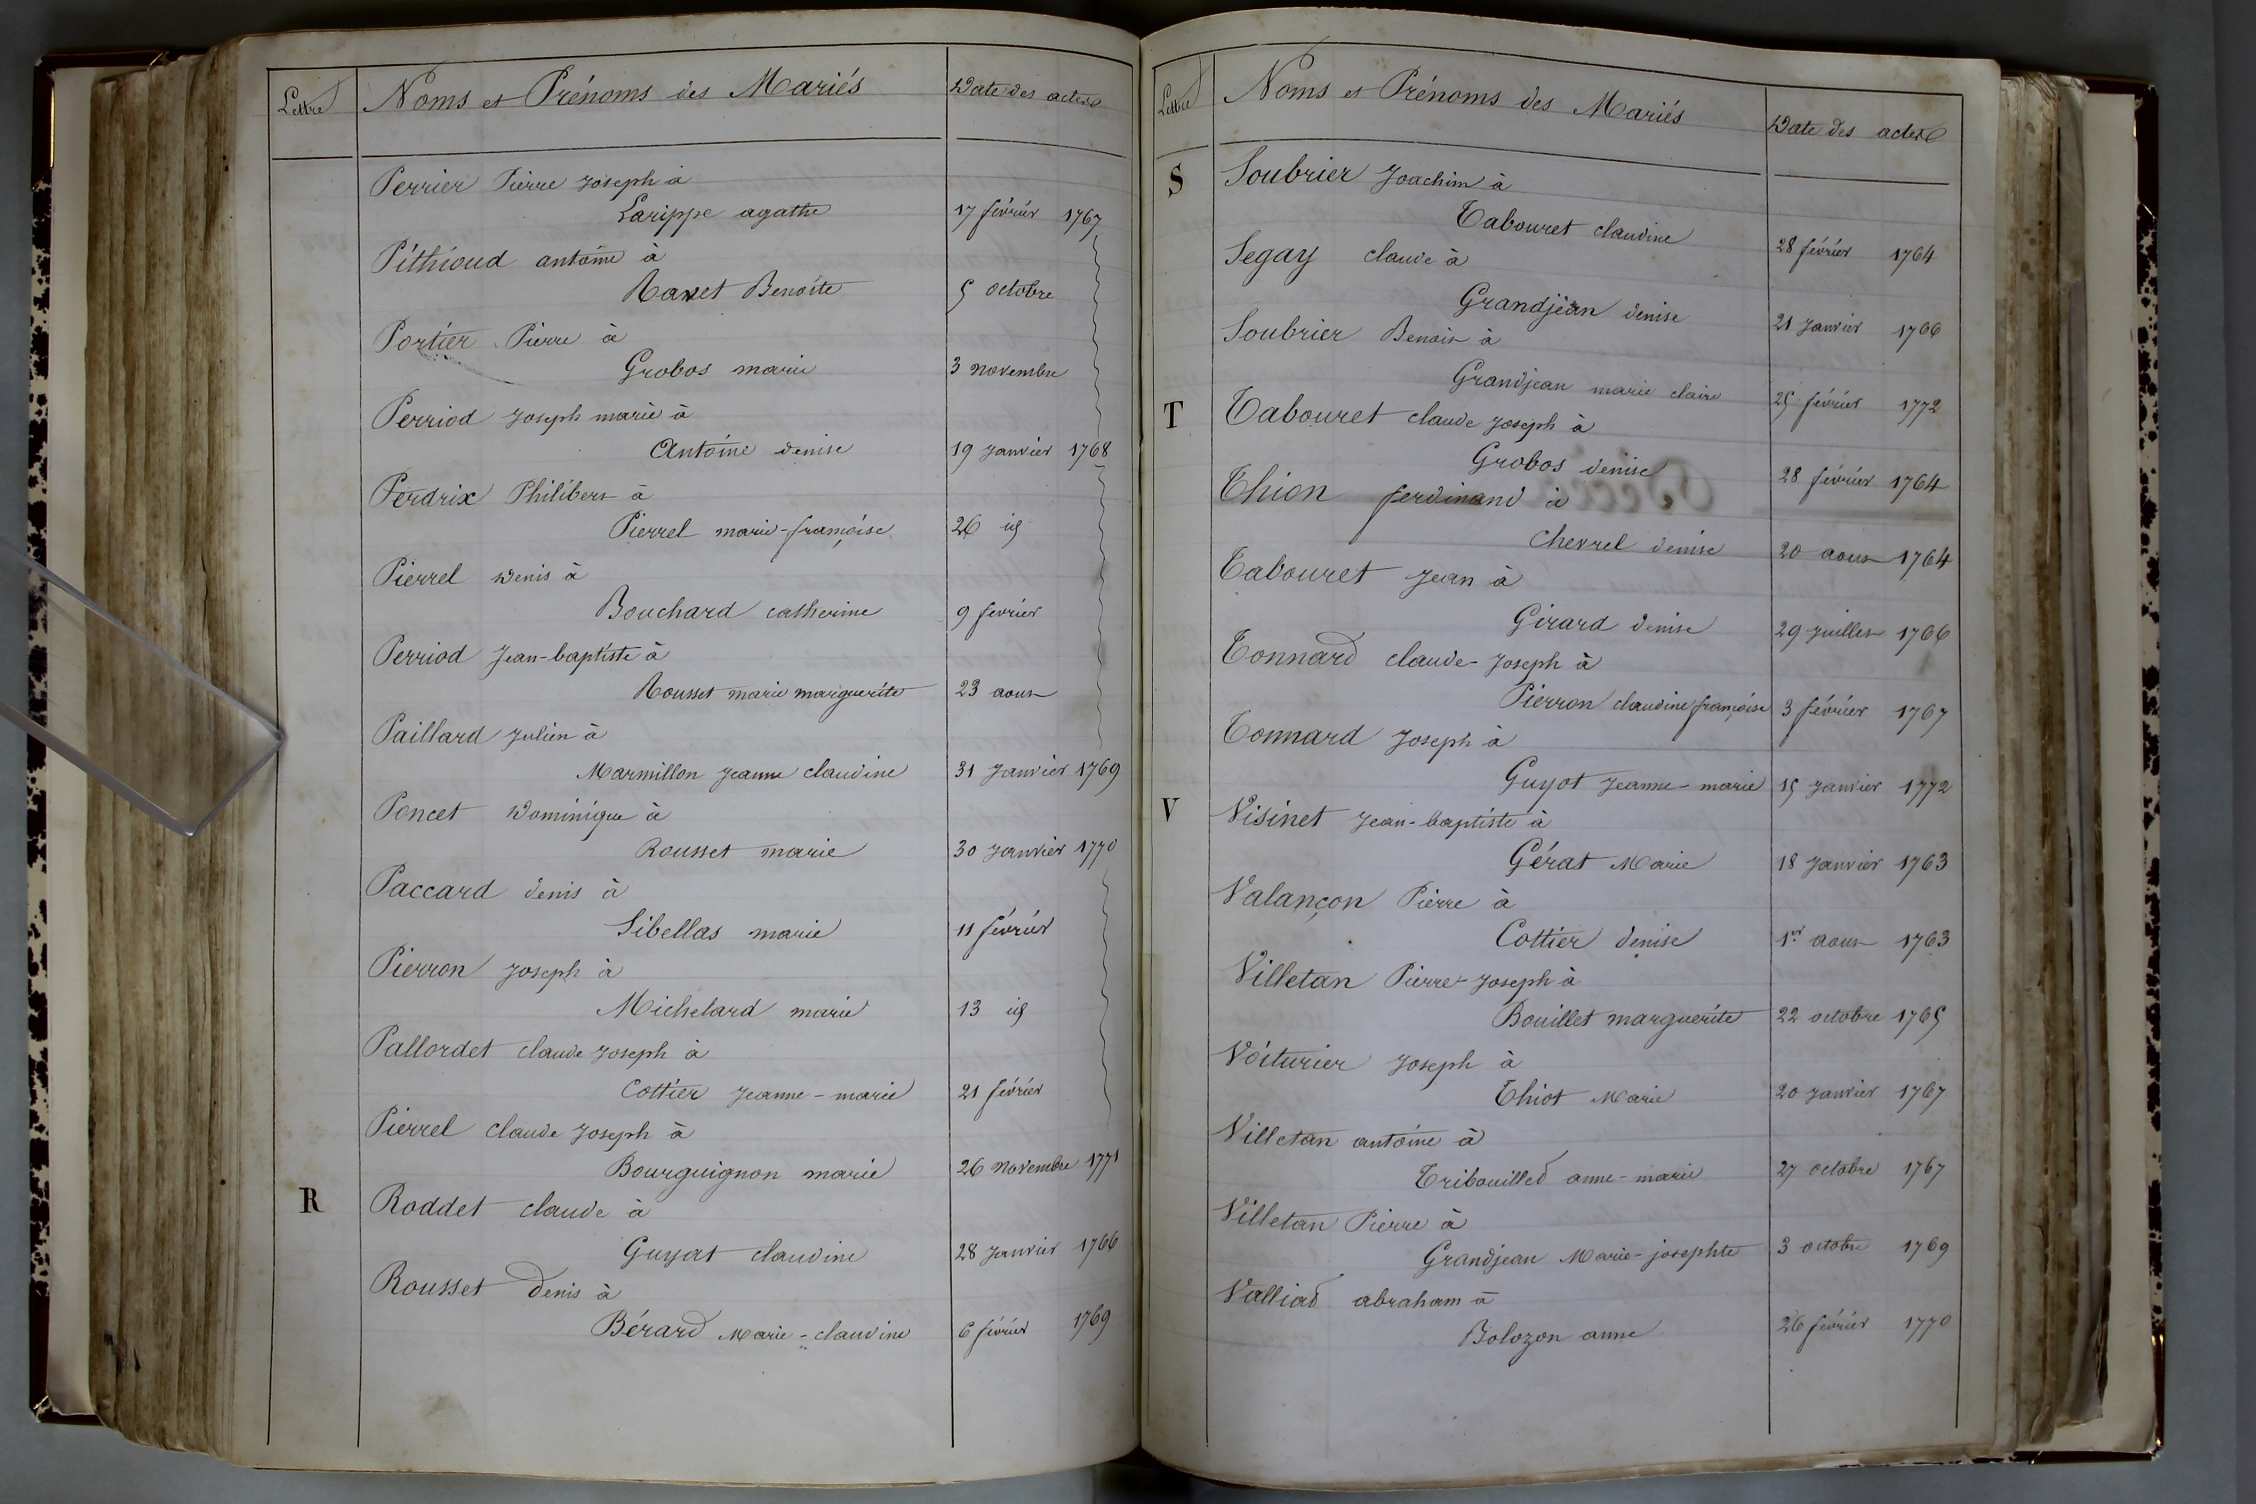 Lettre Noms et Prénoms des Mariés Date des actes
Perrier Pierre Joseph à
Larippe agathe 17 février 1767
Pithioud antoine à
Ravet Benoite 5 octobre
Portier Pierre à
Grobos marie 3 novembre
Perriod Joseph marie à
Antoine denise 19 Janvier 1768
Perdrix Philibert à
Pierrel marie-françoise 26 id
Pierrel Denis à
Bouchard catherine 9 fevrier
Perriod Jean-baptiste à
Rousset marie marguerite 23 aout
Paillard Julien à
Marmillon Jeanne claudine 31 Janvier 1769
Poncet Dominique à
Rousset marie 30 Janvier 1770
Paccard denis à
Sibellas marie 11 février
Pierron Joseph à
Michelard marie 13 id
Pallordet claude Joseph à
Cottier Jeanne-marie 21 février
Pierrel claude Joseph à
Bourguignon marie 26 novembre 1771
R Roddet claude à
Guyat claudine 28 Janvier 1766
Rousset Denis à
Bérard Marie-claudine 6 février 1769
Lettre Noms et Prénoms des Mariés Date des actes
S Soubrier Joachim à
Tabouret claudine 28 février 1764
Segay claude à
Grandjean denise 21 Janvier 1766
Soubrier Benoit à
Grandjean marie claire 25 février 1772
T Tabouret claude Joseph à
Grobos denise 28 février 1764
Thion ferdinand à
Chevrel denise 20 aout 1764
Tabouret Jean à
Girard denise 29 Juillet 1766
Tonnard claude-Joseph à
Pierron claudine françoise 3 février 1767
Tonnard Joseph à
Guyot Jeanne-marie 15 Janvier 1772
V Visinet Jean-baptiste à
Gérat Marie 18 Janvier 1763
Valançon Pierre à
Cottier denise 1er aout 1763
Villetan Pierre-Joseph à
Bouillet marguerite 22 octobre 1765
Voiturier Joseph à
Thiot Marie 20 Janvier 1767
Villetan antoine à
Tribouilled anne-marie 27 octobre 1767
Villetan Pierre à
Grandjean Marie-josephte 3 octobre 1769
Valliad abraham à
Bolozon anne 26 février 1770